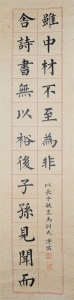 舍詩書無以裕後子孫見聞而
雖中材不至為非